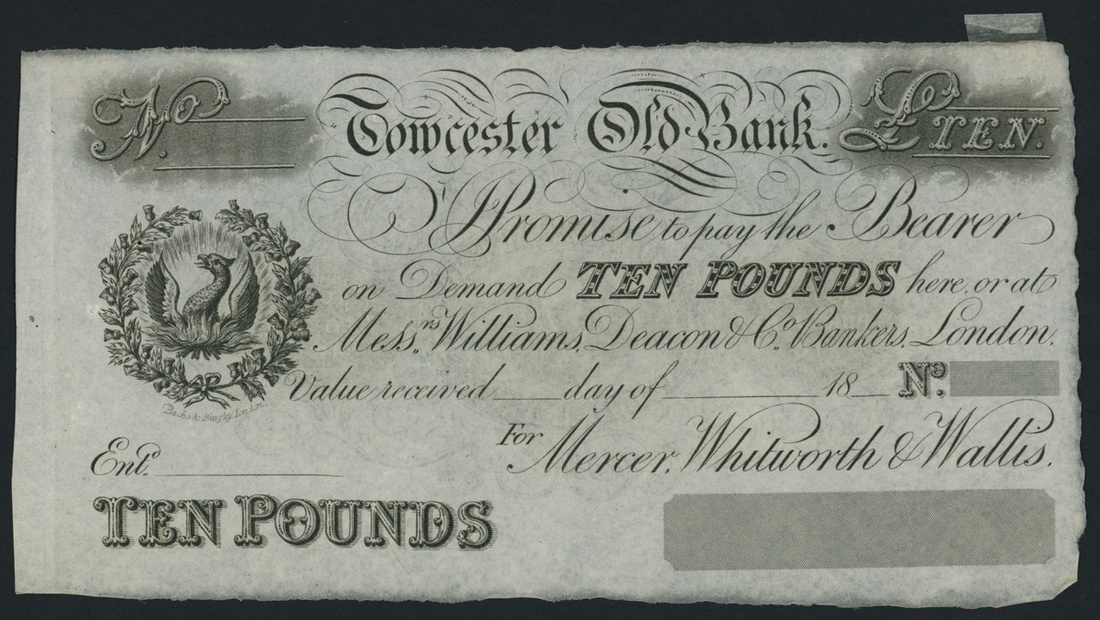 No.
Towcester Old Bank.
£TEN.
I Promise to pay the Bearer
on Demand TEN POUNDS here, or at
Messrs. Williams, Deacon & Co. Bankers, London.
Value received ____ day of ________ 18__ No.
For Mercer, Whitworth & Wallis.
Entd. ________
TEN POUNDS